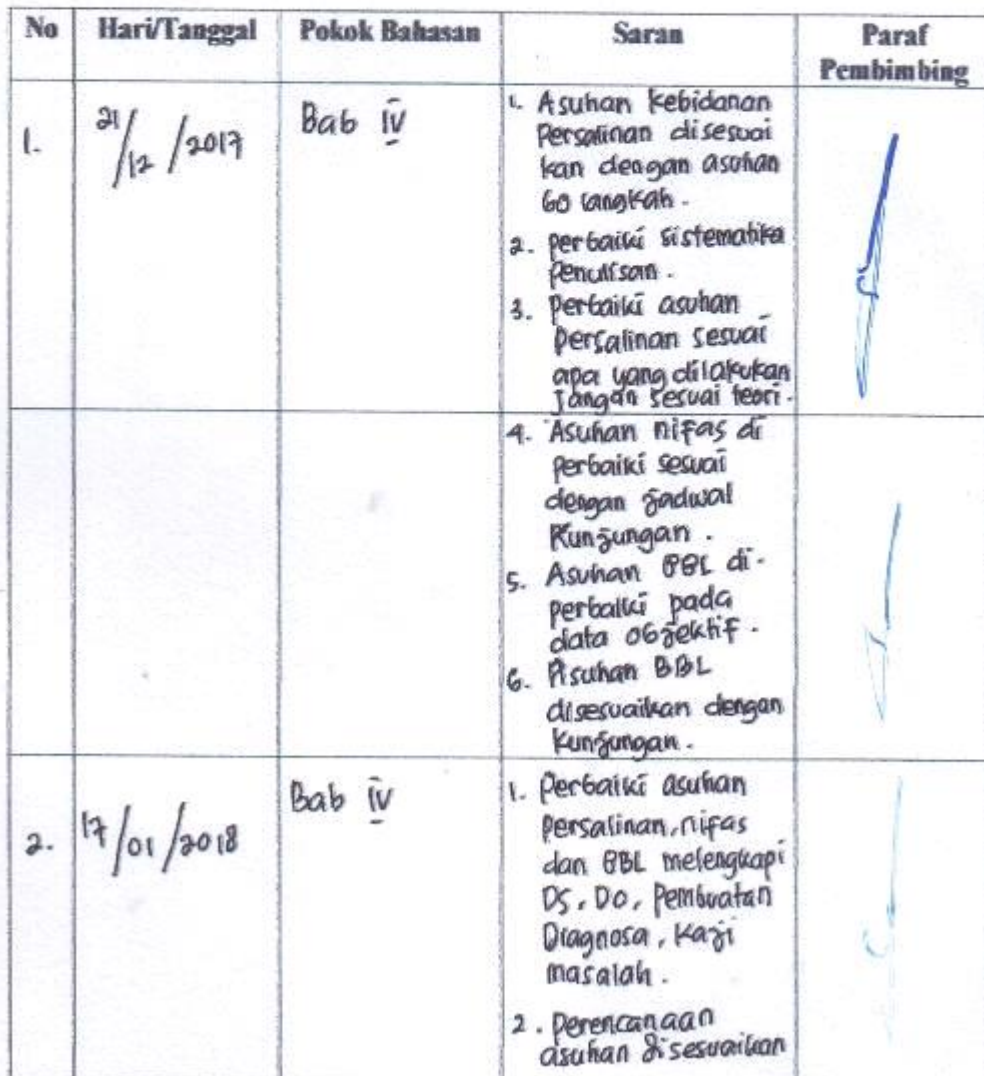 No Hari/Tanggal Pokok Bahasan Saran Paraf Pembimbing
1. 21/12/2017 Bab IV
1. Asuhan Kebidanan
Persalinan disesuai
kan dengan asuhan
60 langkah.
2. perbaiki sistematika
Penulisan.
3. Perbaiki asuhan
Persalinan sesuai
apa yang dilakukan
jangan sesuai teori.
4. Asuhan nifas di
perbaiki sesuai
dengan jadwal
Kunjungan.
5. Asuhan BBL di-
perbaiki pada
data objektif.
6. Asuhan BBL
disesuaikan dengan
Kunjungan.
2. 17/01/2018 Bab IV
1. Perbaiki asuhan
Persalinan, nifas
dan BBL melengkapi
DS, DO, Pembuatan
Diagnosa, Kaji
masalah.
2. Perencanaan
asuhan disesuaikan